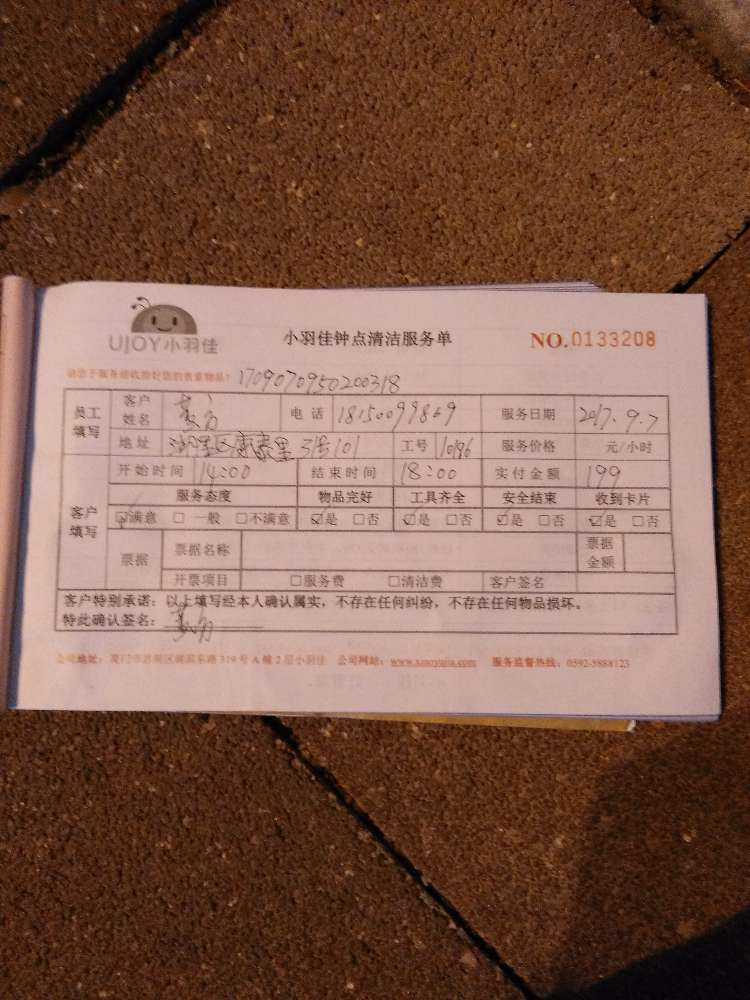 UJOY小羽佳
小羽佳钟点清洁服务单
NO.0133208
请您于服务前收拾好您的贵重物品!
1709070950200318
员工填写 客户姓名 电话 18150099869 服务日期 2017.9.7
地址 湖里区康泰里31号101 工号 10196 服务价格 元/小时
开始时间 14:00 结束时间 18:00 实付金额 199
客户填写 服务态度 物品完好 工具齐全 安全结束 收到卡片
☑满意 □一般 □不满意 ☑是 □否 ☑是 □否 ☑是 □否 ☑是 □否
票据 票据名称 票据金额
开票项目 □服务费 □清洁费 客户签名
客户特别承诺:以上填写经本人确认属实,不存在任何纠纷,不存在任何物品损坏。
特此确认签名:
公司地址:厦门市思明区湖滨东路319号A幢2层小羽佳 公司网站: 服务监督热线:0592-5888123